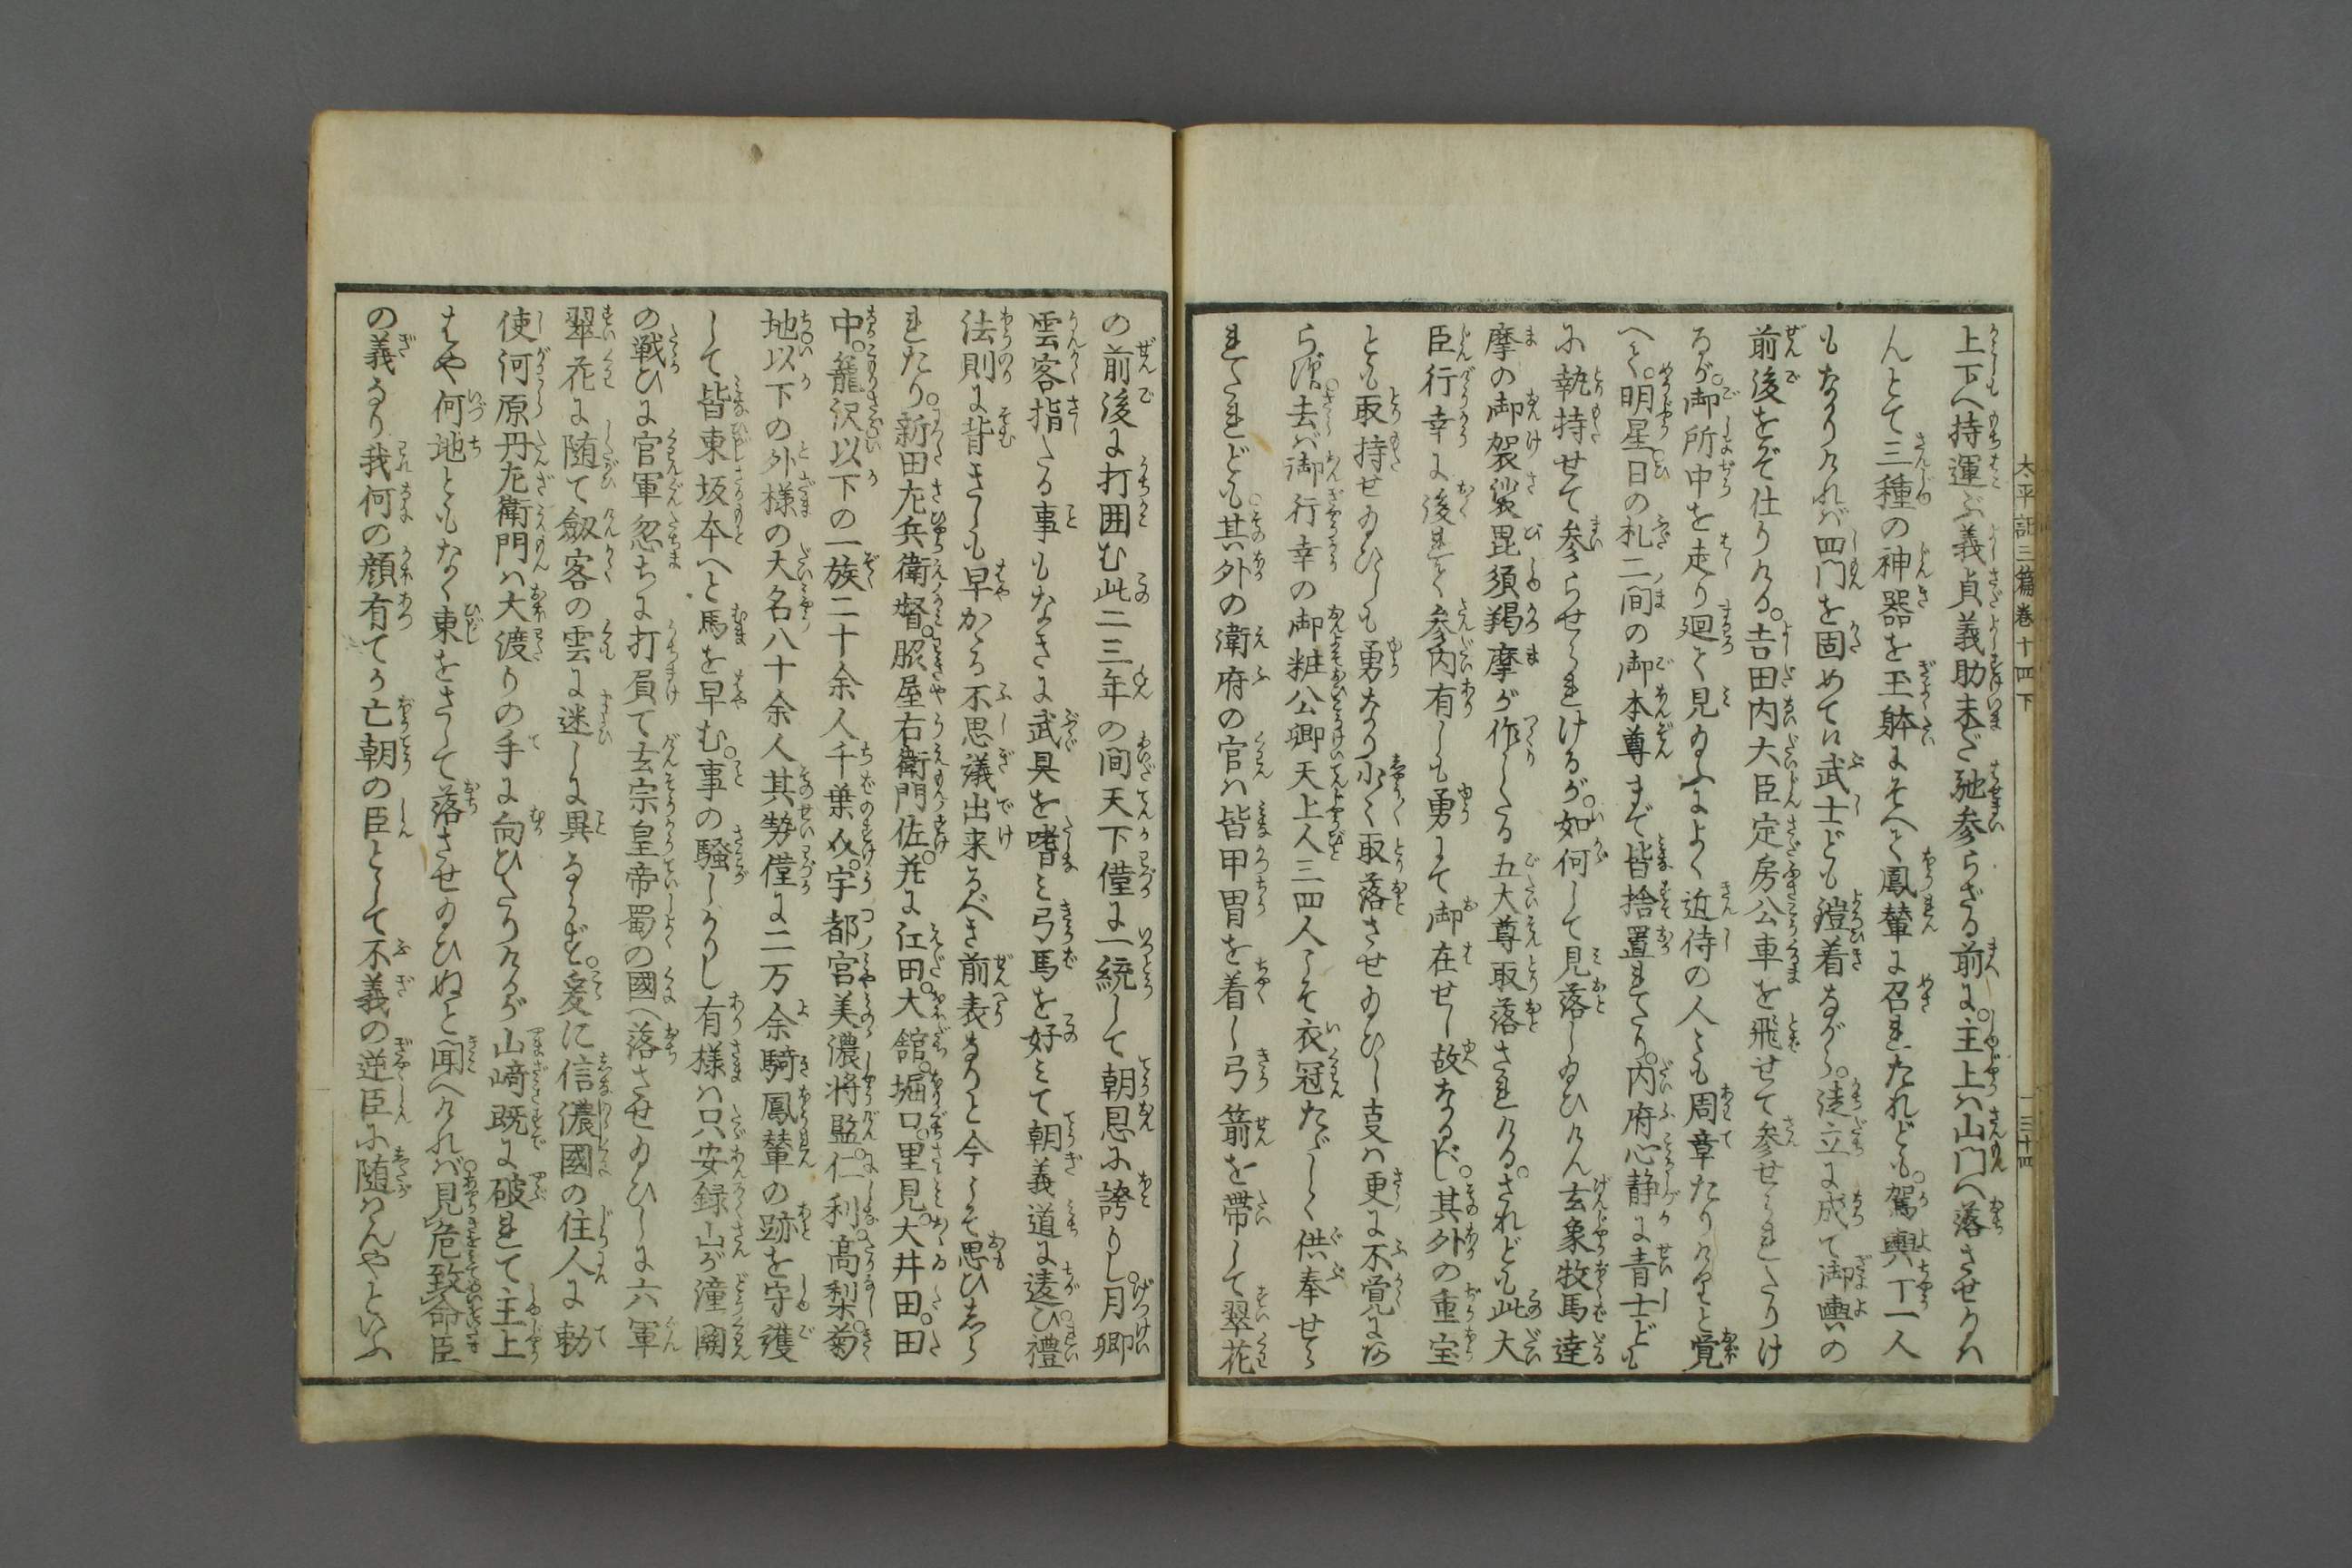 太平記三篇巻十四下
三十四
上下へ持運ぶ義貞義助未だ馳参らざる前に主上ハ山門へ落させ給ハ
んとて三種の神器を玉躰にそへて鳳輦に召れたれども駕輿丁一人
もなかりければ四門を固めてい武士ども鎧着ながら徒立に成て御輿の
前後をぞ仕りける吉田内大臣定房公車を飛せて参せられたりけ
るが御所中を走り廻て見給ふによく近侍の人々も周章たりけりと覚
へて明星日の札二間の御本尊まで皆捨置れたり内府心静に青士ども
に執持せて参らせられけるが如何して見落し給ひけん玄象牧馬達
摩の御袈裟毘須羯摩が作したる五大尊取落されけるされども此大
臣行幸に後れて参内有しも勇にて御在せし故なるべし其外の重宝
とも取持せ給ひしも勇なり少く取落させ給ひし支ハ更に不覚にあ
らず去ば御行幸の御粧公卿天上人三四人こそ衣冠たゞしく供奉せら
れたれども其外の衛府の官ハ皆甲冑を着し弓箭を帯して翠花
の前後に打囲む此二三年の間天下僅に一統して朝恩に誇りし月卿
雲客指たる事もなきに武具を嗜み弓馬を好みて朝義道に違ひ禮
法則に背きしも早かゝる不思議出来るべき前表なりと今こそ思ひしら
れたり新田左兵衛督脇屋右衛門佐并に江田大舘堀口里見大井田田
中籠沢以下の一族二十余人千葉介宇都宮美濃将監仁科高梨菊
地以下の外様の大名八十余人其勢僅に二万余騎鳳輦の跡を守護
して皆東坂本へと馬を早む事の騒しかりし有様ハ只安録山が潼関
の戦ひに官軍忽ちに打屓て玄宗皇帝蜀の國へ落させ給ひしに六軍
翠花に随て劔客の雲に迷しに異ならず爰に信濃國の住人に勅
使河原丹左衛門ハ大渡りの手に向ひたりけるが山﨑既に破れて主上
はや何地ともなく東をさして落させ給ひぬと聞へければ見危致命臣
の義なり我何の顔有てか亡朝の臣として不義の逆臣に随ハんやといふ